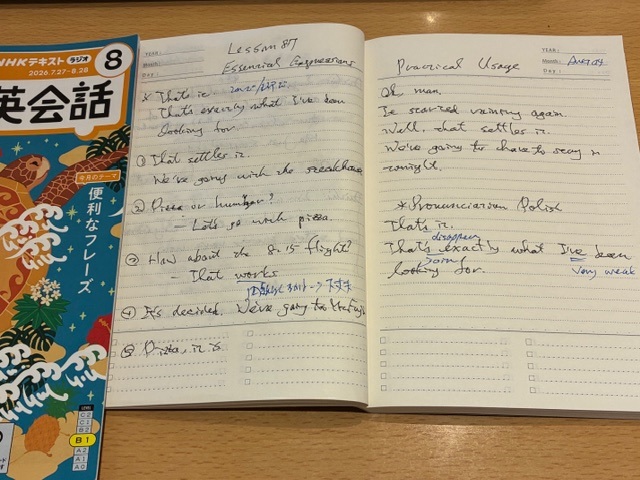 NHKテキスト ラジオ
2026 7.27-8.28
8
英会話
今月のテーマ
便利なフレーズ
LEVEL
C2
C1
B2
B1
A2
A1
A0
YEAR:
DAY:
Lesson 87
Essential Expressions
* That's it.
That's exactly what I've been
looking for.
① That settles it.
We're going with the steakhouse
② Pizza or
- Let's go with pizza.
③ How about the 8:15 flight?
- That works
④ It's decided. We're going to
⑤ Pizza, it is.
YEAR:
Month:
DAY:
Practical Usage
Oh man.
It started raining again.
Well, that settles it.
We're going to have to stay in
tonight.
* Pronunciation Polish
That's it.
disappear
That's exactly what I've been
joint
looking for.
very weak